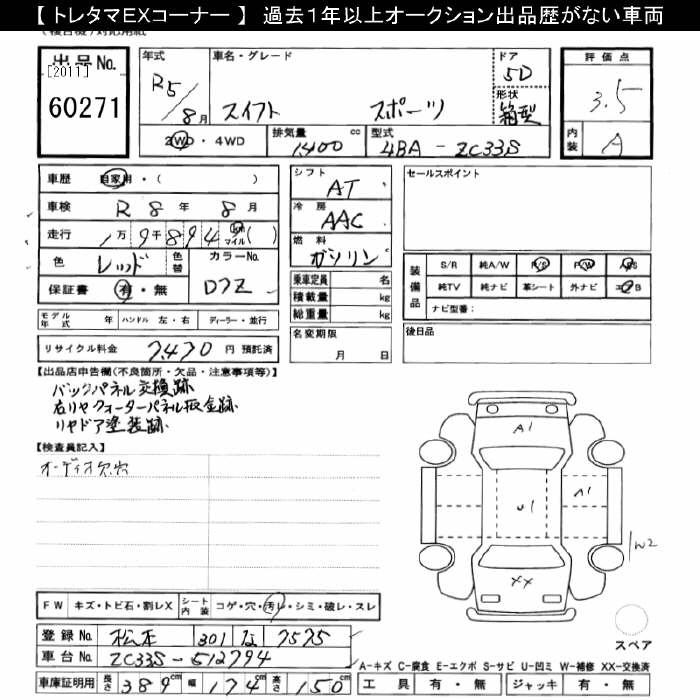 【 トレタマEXコーナー 】 過去１年以上オークション出品歴がない車両
出品No.
[2011]
60271
年式
R5/8月
車名・グレード
スイフト スポーツ
ドア
5D
形状
箱型
評価点
3.5
内装
A
2WD・4WD
排気量
1400 cc
型式
4BA - ZC33S
車歴 自家用・( )
車検 R 8 年 8 月
走行 1万9千894 km マイル ( )
色 レッド 色替
カラーNo. D7Z
保証書 有・無
シフト AT
冷房 AAC
燃料 ガソリン
乗車定員 名
積載量 kg
総重量 kg
名変期限
月 日
セールスポイント
装備品
S/R 純A/W P/S P/W A/S
純TV 純ナビ 革シート 外ナビ エアB
ナビ型番：
後日品
モデル年式 年 ハンドル 左・右 ディーラー・並行
リサイクル料金 7,470 円 預託済
【出品店申告欄(不良箇所・欠品・注意事項等)】
バックパネル交換跡
右リヤクォーターパネル板金跡
リヤドア塗装跡
【検査員記入】
オーディオ欠穴
A1
A1
U1
W2
XX
スペア
FW キズ・トビ石・割レX シート内装 コゲ・穴・汚レ・シミ・破レ・スレ
登録No. 松本 301 な 7575
車台No. ZC33S-512794
車庫証明用 長さ 389cm 幅 174cm 高さ 150cm
A-キズ C-腐食 E-エクボ S-サビ U-凹ミ W-補修 XX-交換済
工具 有・無 ジャッキ 有・無